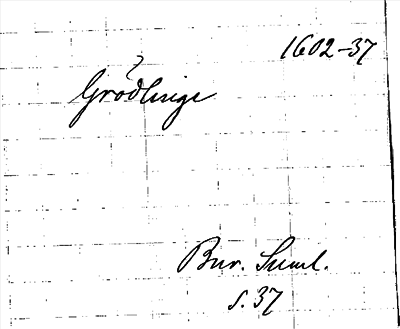 1602-37
?
Grödlinge
Bur. Suml.
s. 37